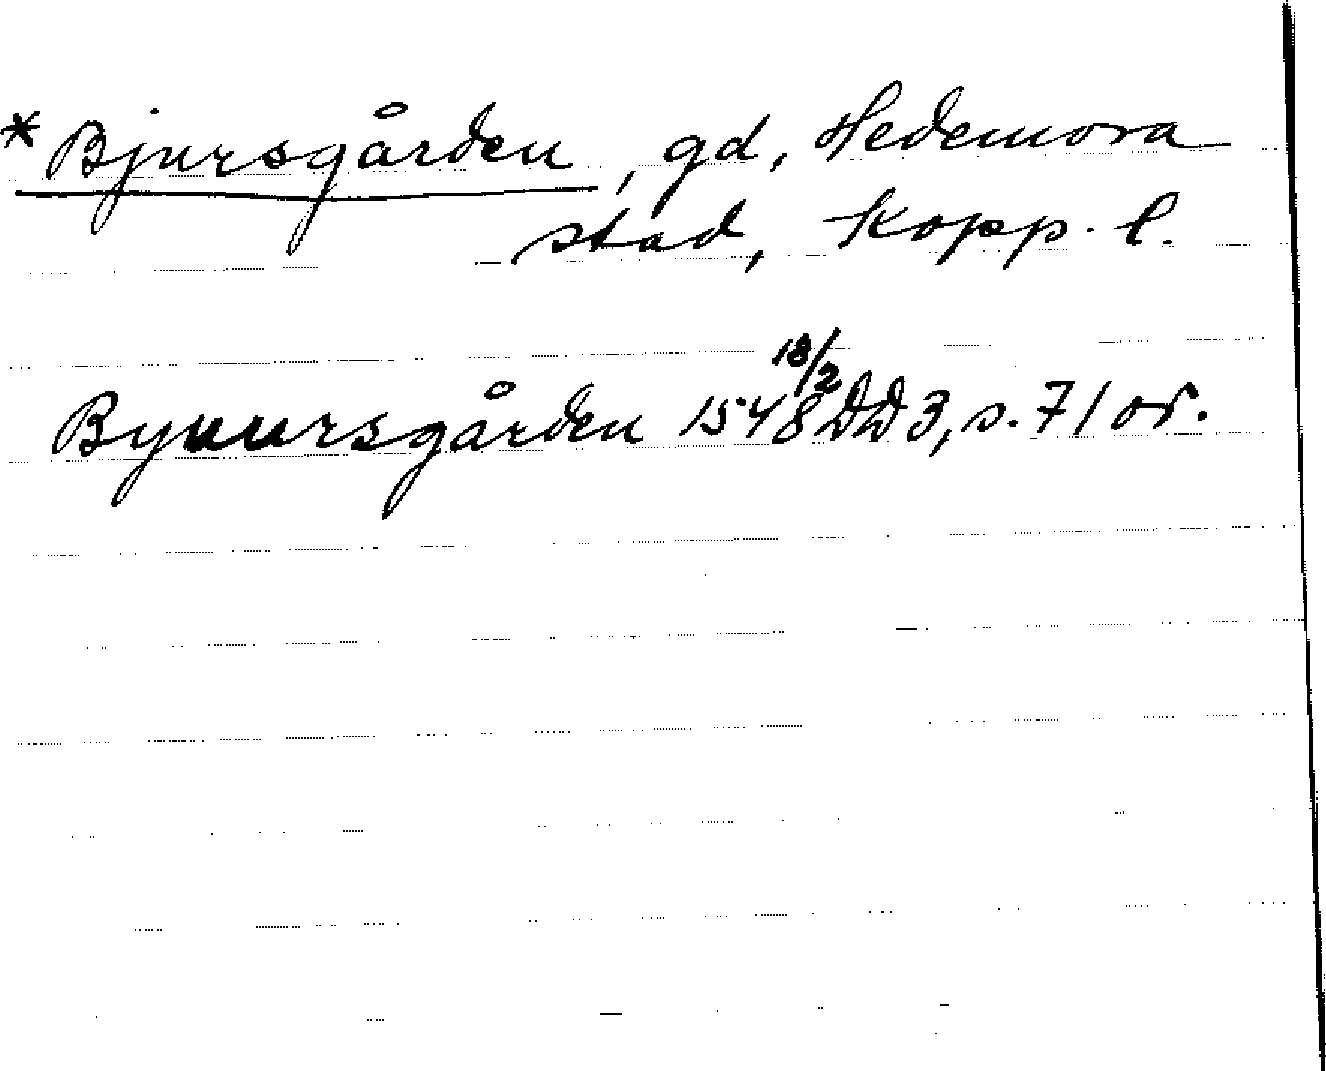 * Bjursgården, gd, Hedemora
stad, Kopp. l.
Byuursgården 1548 18/2 DD 3, s. 71 or.